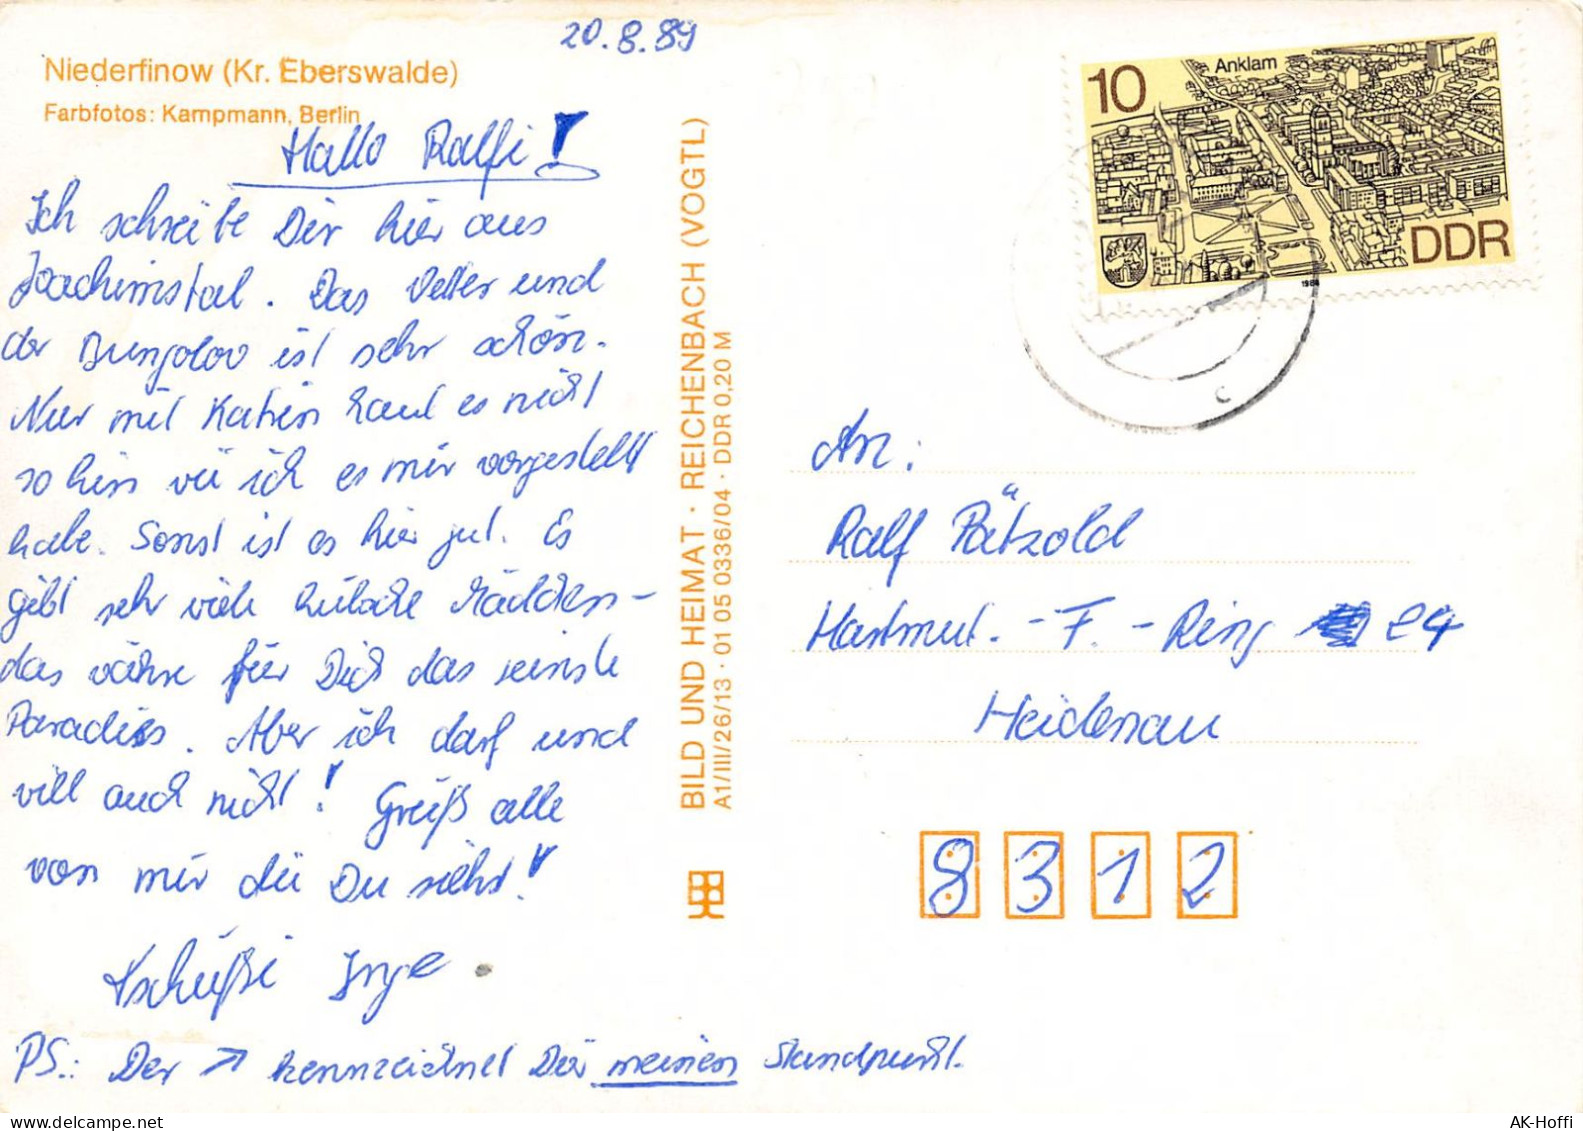 20.8.89
Niederfinow (Kr. Eberswalde)
Farbfotos: Kampmann, Berlin
Hallo Ralfi!
Ich schreibe Dir hier aus
Joachimstal. Das Vetter und
der Bungolov ist sehr schön.
Nur mit Katrin haut es nicht
so hin vii ich es mir vorgestellt
habe. Sonst ist es hier gut. Es
gibt sehr viele hübsche Mädchen-
das vähre für Dich das reinste
Paradies. Aber ich darf und
vill auch nicht! Grüß alle
von mir die Du siehst!
Tschüßi Inge.
PS.: Der ↗ kennzeichnet Dir meinen Standpunkt.
BILD UND HEIMAT · REICHENBACH (VOGTL)
A1/III/26/13 · 01 05 0336/04 · DDR 0,20 M
10
Anklam
DDR
1988
c
An:
Ralf Pätzold
Hartmut.-F.-Ring 24
Heidenau
8312
AK-Hoffi